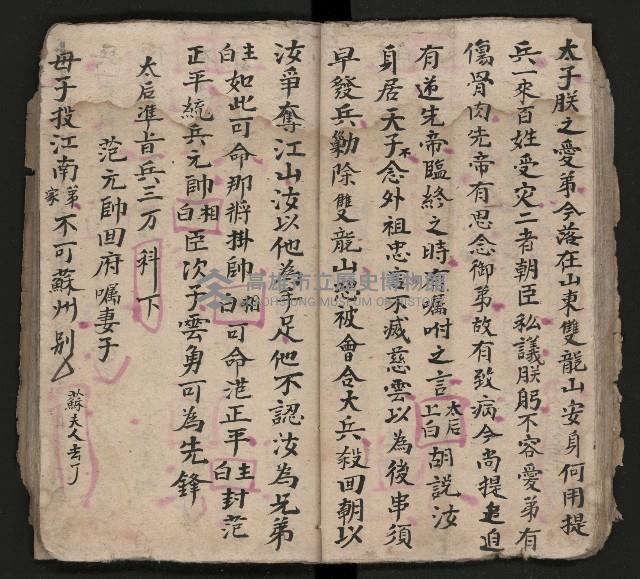 太子朕之愛弟今落在山東雙龍山安身何用提
兵一來百姓受災二者朝臣私議朕躬不容愛弟有
傷骨肉先帝有思念御弟故有致病今尚提追迫
有逆先帝臨終之時有囑咐之言太后上白胡說汝
身居天子不念外祖忠不滅慈雲以為後患須
早發兵勦除雙龍山被會合大兵殺回朝以
汝爭奪江山汝以他為手足他不認汝為兄弟
主白如此可命那將掛帥相白可命范正平主白封范
正平統兵元帥相白臣次子雲勇可為先鋒
太后準旨兵三万科下
范元帥回府囑妻子
母子投江南弟家不可蘇州别
蘇夫人去了
高雄市立歷史博物館
KAOHSIUNG MUSEUM OF HISTORY